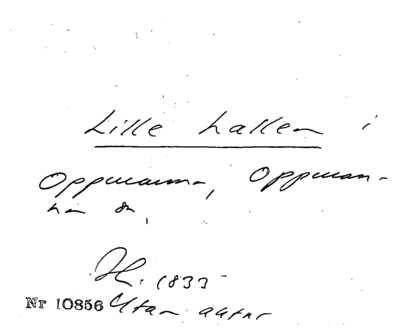 Lille Lallen i
Oppmanna, Oppman-
na sn,
H. 1833
Nr 10856 Utan autor